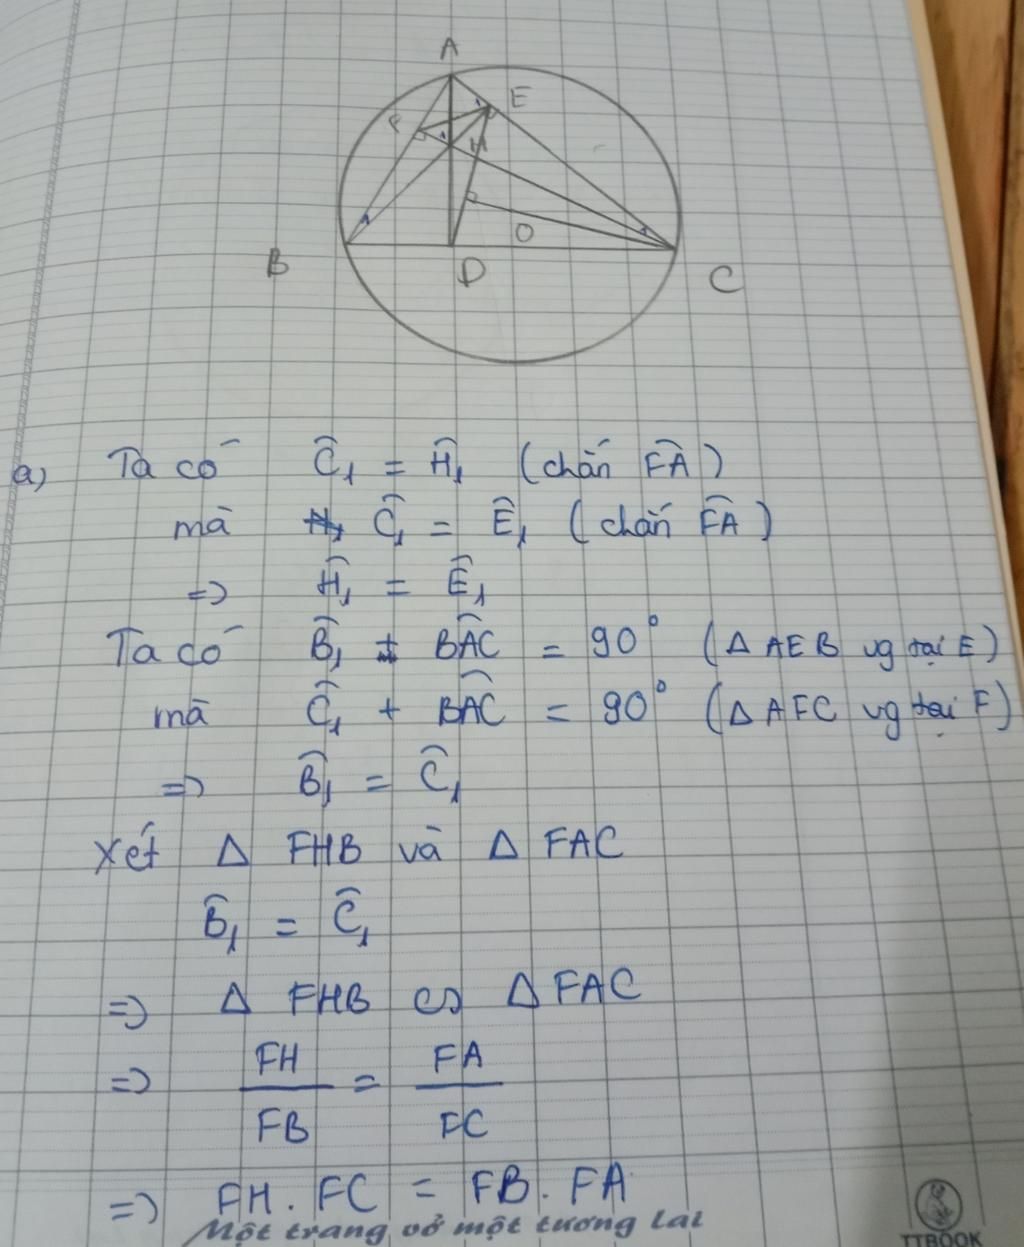 A
E
F
H
O
B
D
C
a) Ta có Ĉ₁ = Ĥ₁ (chắn F͡A)
mà Ĉ₁ = Ê₁ (chắn F͡A)
=> Ĥ₁ = Ê₁
Ta có B̂₁ + BÂC = 90° (Δ AEB vg tại E)
mà Ĉ₁ + BÂC = 90° (Δ AFC vg tại F)
=> B̂₁ = Ĉ₁
Xét Δ FHB và Δ FAC
B̂₁ = Ĉ₁
=> Δ FHB ∽ Δ FAC
=> FH/FB = FA/FC
=> FH . FC = FB . FA
Một trang vở một tương lai
TTBOOK